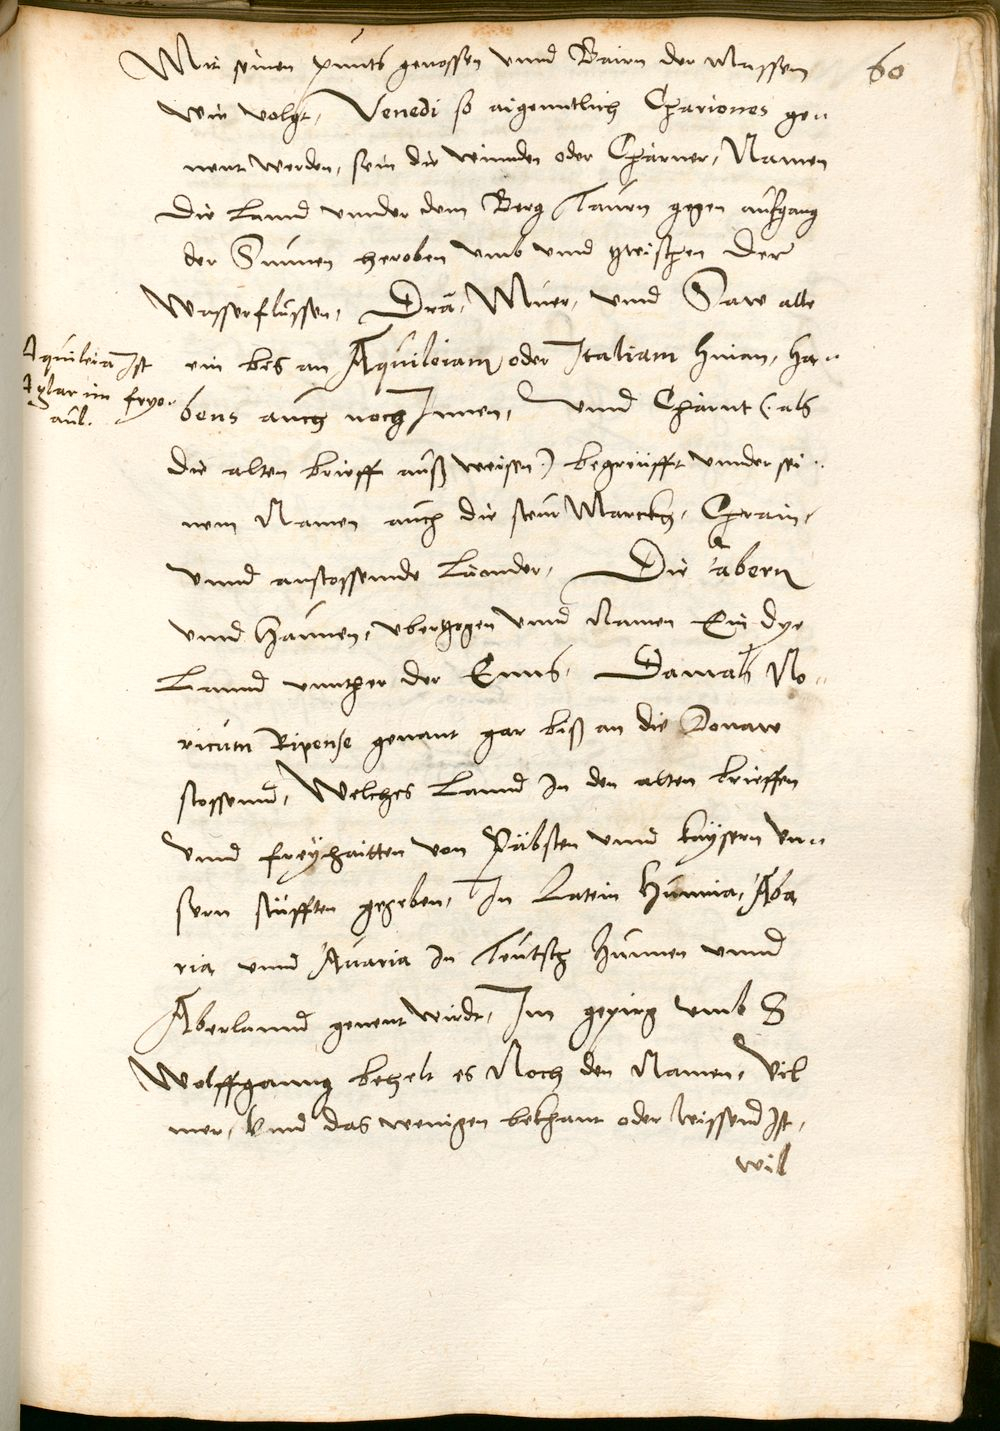 60
Mit seinen punts genossen vnnd Bairn der massen
wie volgt, Venedi so aigenntlich Chariones ge„
nent werden, sein die winnden oder Chärner, Namen
die Lannd vnnder dem Berg Taurn gegen aufgang
der Sunnen heroben vmb vnnd zwischen der
Wasserflüssen, Dra, Muer, vnnd Saw alle
ein bis an Aquileiam oder Italiam hinan, ha„
bens auch noch Innen, vnnd Chärnt (: als
die alten brieff auß weisen :) begreüfft vnnder sei„
nem Namen auch die steir Marckh, Chrain,
vnnd anstossennde Lännder, Die Abern
vnnd Haunen, vberzogen vnnd Namen Ein dye
Lannd vnnther der Enns, Damals No„
ricum Ripense genant gar biß an die Donaw
stossennd, Welches Lannd In den alten brieffen
vnnd freÿhaitten von Päbsten vnnd kaÿsern vn„
sern stüfften gegeben, In Latein Hunnia, Aba
ria vnnd Auaria In Teutsch Hunnen vnnd
Aberlannd genent wirdt, Im gepirg vmb S
Wolffganng behelt es Noch den Namen, Vil
mer, Vnnd das wenigen bekhant oder wissend Ist,
wil
Aquileia Ist
Aglar im fryo„
aul.